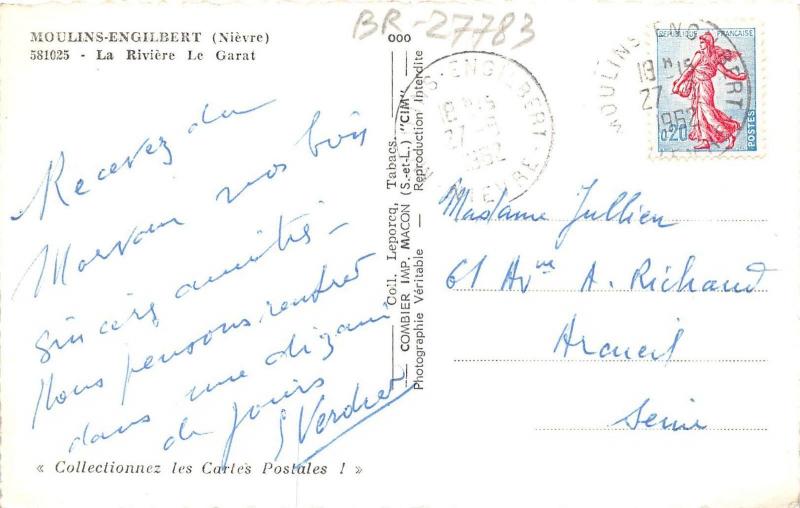 MOULINS-ENGILBERT (Nièvre)
581025 - La Rivière Le Garat
BR-27783
ooo
Recevez du
Morvan nos bons
sincères amitiés -
Nous pensons rentrer
dans une dizaine
de jours
Verdier
« Collectionnez les Cartes Postales ! »
Coll. Leporcq, Tabacs.
COMBIER IMP. MACON (S.-et-L.) "CIM"
Photographie Véritable - Reproduction Interdite
18 H 15
1962
NIEVRE
MOULINS-ENGILBERT
18 H 15
27
1962
REPUBLIQUE FRANÇAISE
0,20
POSTES
Madame Jullien
61 Avue A. Richaud
Arcueil
Seine